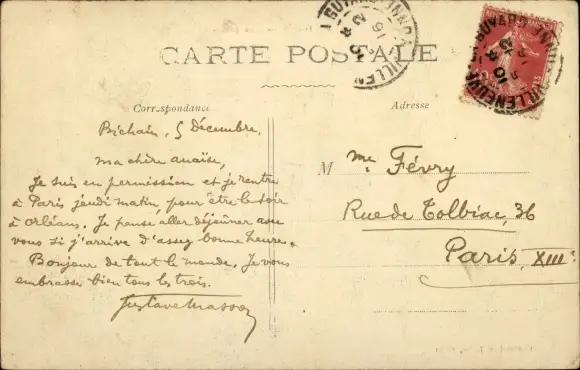 CARTE POSTALE
Correspondance
Adresse
Bichain, 5 Décembre.
Ma chère Anaïse,
Je suis en permission et je rentre
à Paris jeudi matin, pour être le soir
à Orléans. Je pense aller déjeûner avec
vous si j'arrive d'assez bonne heure.
Bonjour de tout le monde. Je vous
embrasse bien tous les trois.
Gustave Masson
M me Févry
Rue de Tolbiac, 36
Paris, XIIIe
VILLENEUVE-LA-GUYARD YONNE